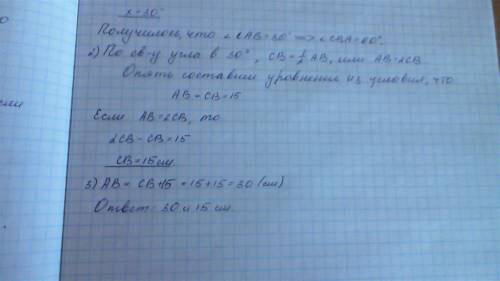 x=30°
Получилось, что ∠CAB=30° => ∠CBA=60°.
2) По св-у угла в 30°, CB=½AB, или AB=2CB.
Опять составим уравнение из условия, что
AB-CB=15
Если AB=2CB, то
2CB-CB=15
CB=15см
3) AB= CB+15 =15+15=30 (см)
Ответ: 30 и 15 см.